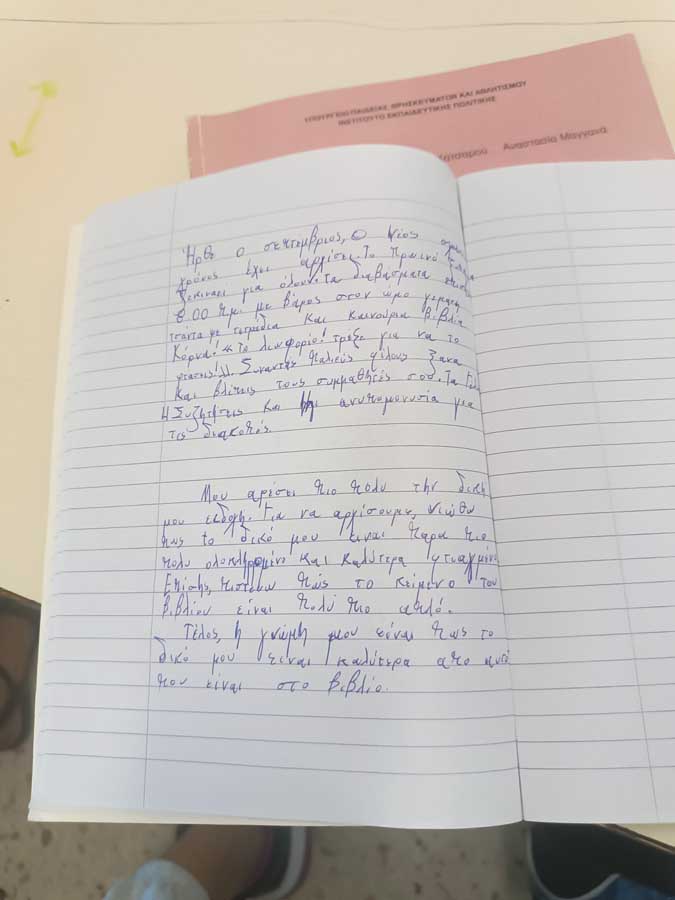 ΥΠΟΥΡΓΕΙΟ ΠΑΙΔΕΙΑΣ, ΘΡΗΣΚΕΥΜΑΤΩΝ ΚΑΙ ΑΘΛΗΤΙΣΜΟΥ
ΙΝΣΤΙΤΟΥΤΟ ΕΚΠΑΙΔΕΥΤΙΚΗΣ ΠΟΛΙΤΙΚΗΣ
Αναστασία Μαγγανά
Ήρθε ο σεπτέμβριος, ο νέος
χρόνος έχει αρχίσει. Το πρωινό
ξεκιναει για όλους. Τα διαβάσματα
8.00 π.μ. με βάρος στον ώμο γεμάτη
τσάντα με τετράδια και καινούρια βιβλία
Κόρνα! "Το λεωφορίο! τρέξε για να το
φτασεις!". Συναντάς παλιούς φίλους ξανα
και βλέπεις τους συμμαθητές σου. Τα
Η Συζητήσεις και η ανυπομονυσία για
τις διακοπές.
Μου αρέσει πιο πολυ την δικη
μου εκδοχη. Για να αρχίσουμε, νιώθω
πως το δικό μου είναι παρα πιο
πολυ ολοκληρομένο και καλύτερα φτιαγμένο
Επίσης, πιστευω πώς το κείμενο του
βιβλίου είναι πολύ πιο απλό.
Τέλος, η γνώμη μου είναι πως το
δικό μου είναι καλύτερα απο αυτό
που είναι στο βιβλίο.